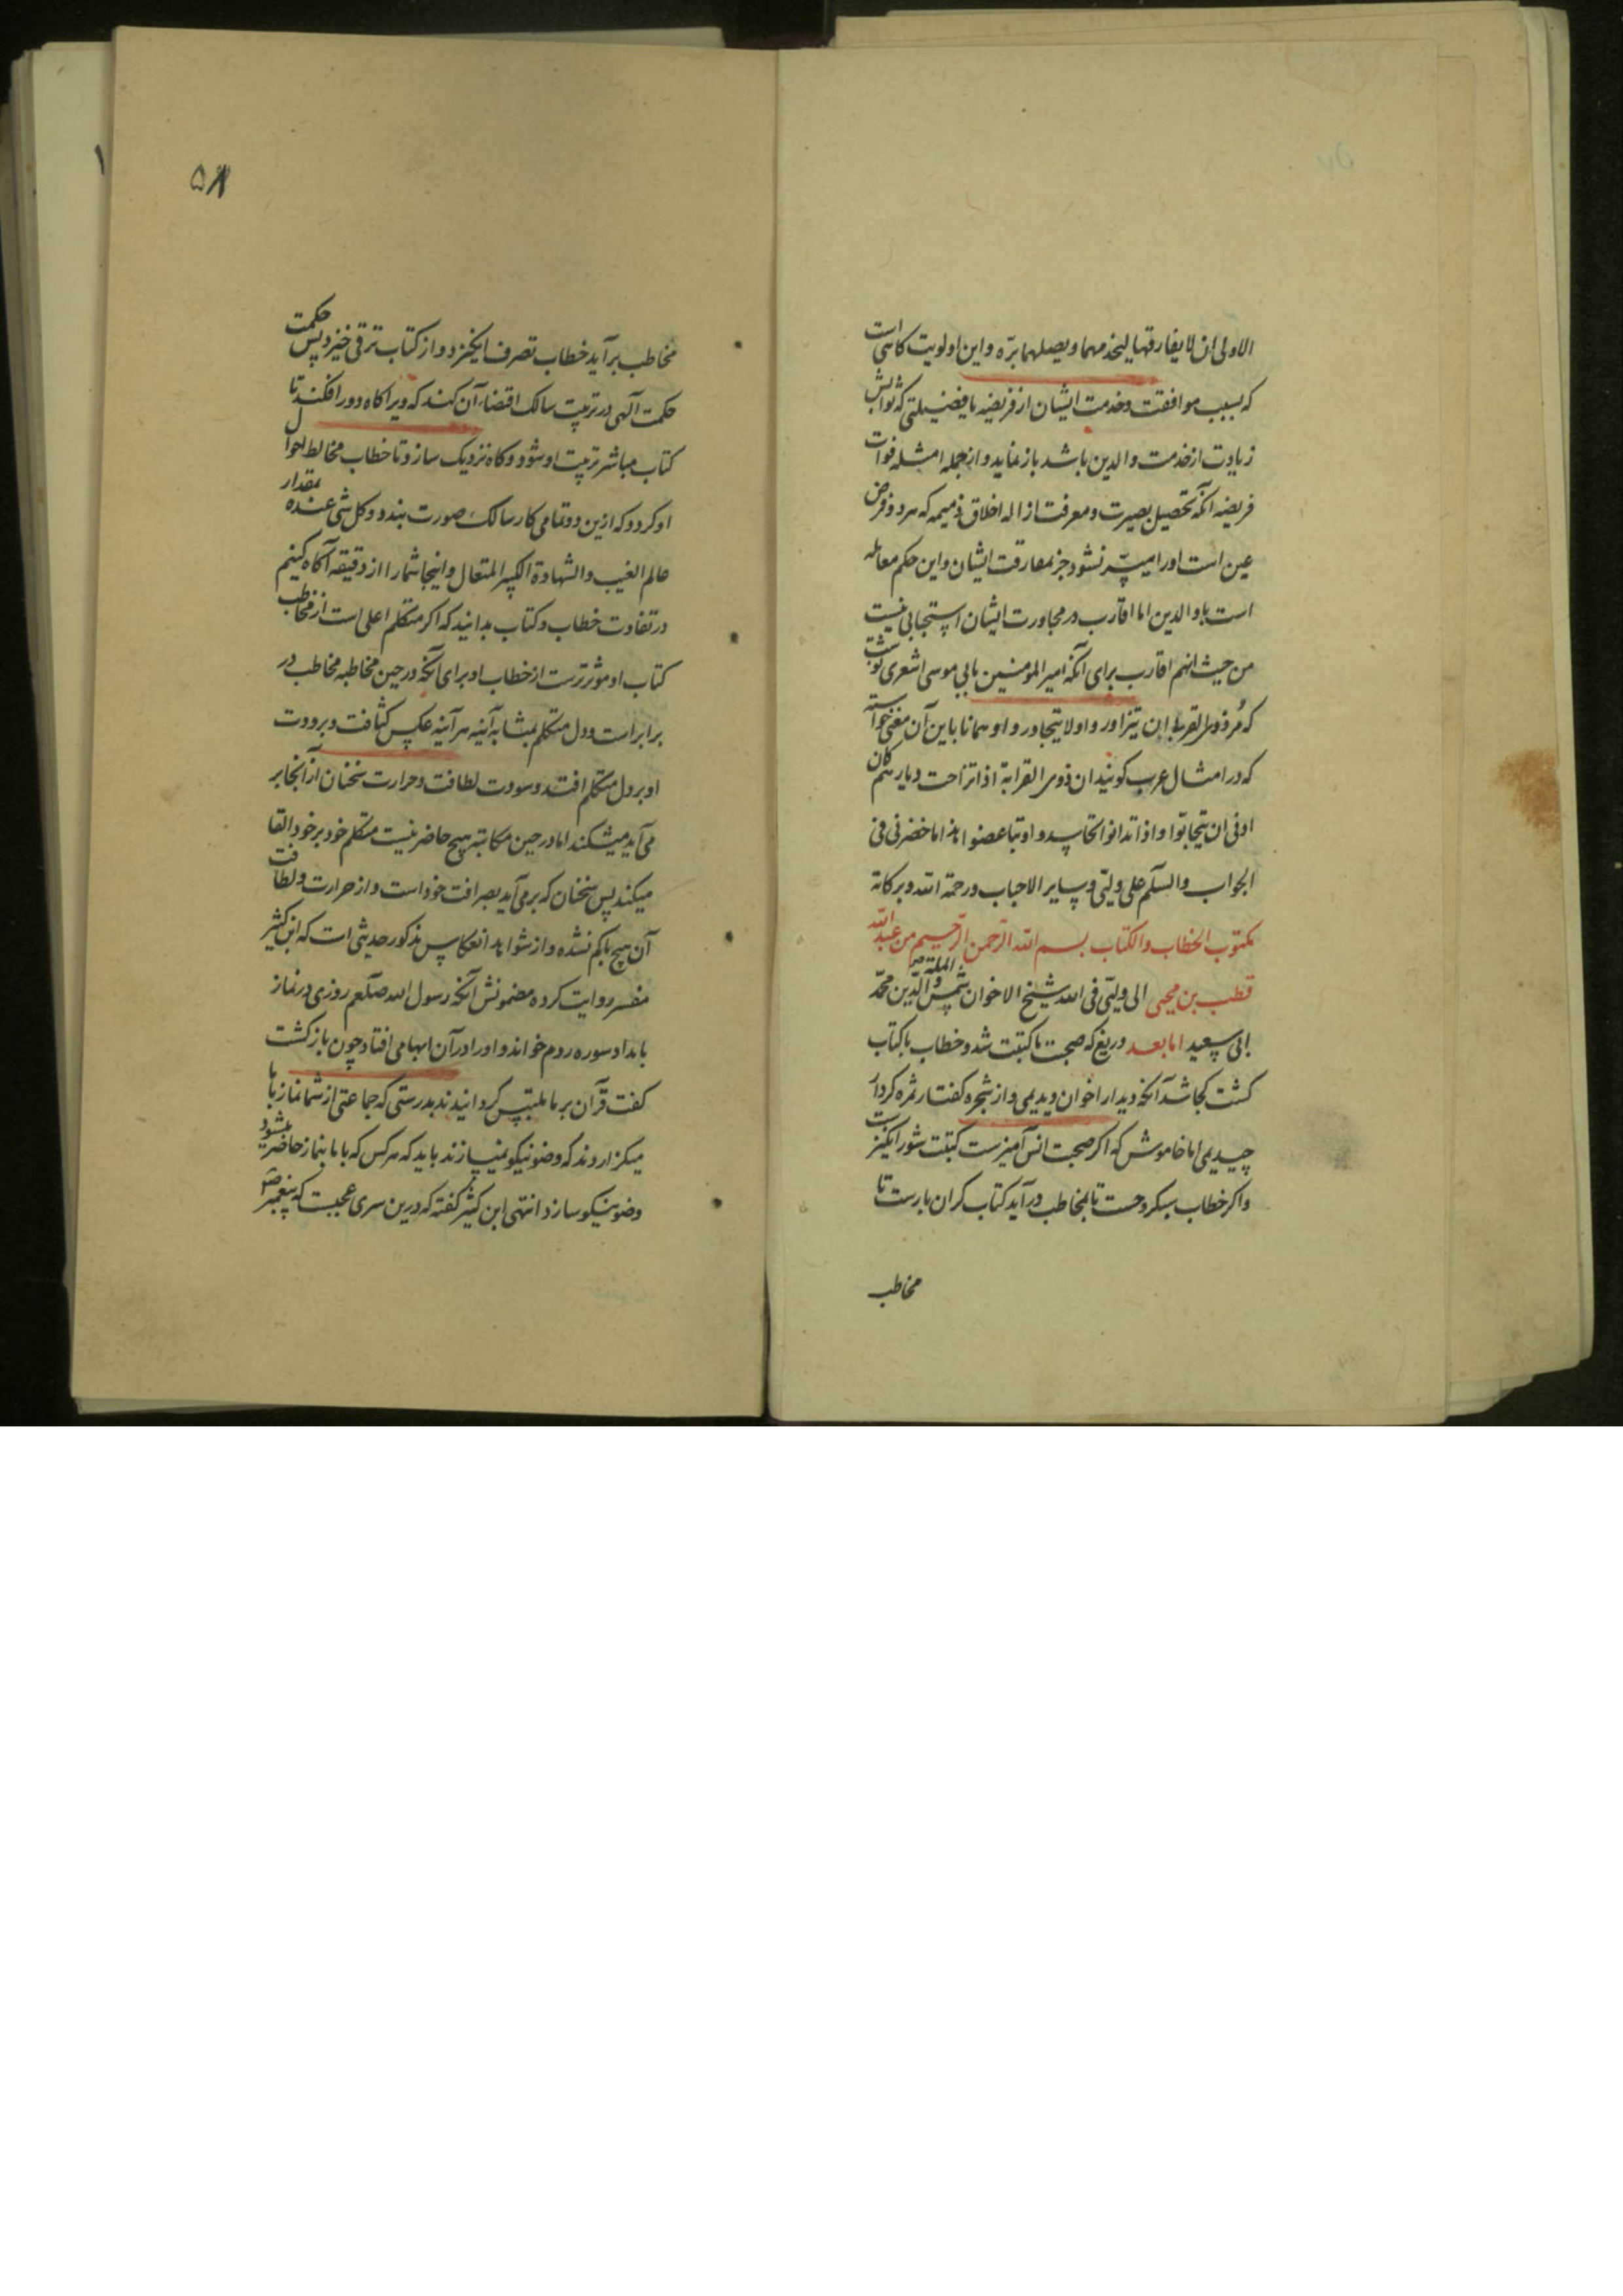 الاولی ان لا یفارقهما لیخدمهما ویصلهما ببرّه و این اولویت کاهی است
که بسبب موافقت و خدمت ایشان از فریضه یا فضیلتی که ثوابش
زیادت از خدمت والدین باشد باز نماید و از جمله امثله فوات
فریضه آنکه تحصیل بصیرت و معرفت از اله اخلاق ذمیمه که هر دو فرض
عین است او را میسّر نشود جز بمفارقت ایشان و این حکم معامله
است با والدین اما اقارب در مجاورت ایشان استحبابی نیست
من حیث انهم اقارب برای آنکه امیر المومنین بابی موسی اشعری نوشت
که مُر ذوی القربا ان یتزاوروا ولا یتجاوروا و همانا باین آن معنی خواسته
که در امثال عرب کویند ان ذوی القرابة اذا تزاحت دیارهم کان
ادنی ان یتحابوا و اذا تدانوا تحاسدوا و تباغضوا هذا ما حضرنی فی
الجواب والسلّم علی ولیّی و سایر الاحباب ورحمة الله وبرکاته
مکتوب الخطاب والکتاب بسم الله الرّحمن الرّحیم من عبد الله
قطب بن محیی الی ولیّی فی الله شیخ الاخوان شمس الملة و الدّین محمّد
ابی سعید اما بعد دریغ که صحبت با کتبت شد و خطاب با کتاب
کشت کجا شد آنکه دیدار اخوان دیدیمی و از شجره کفتار ثمره کردار
چیدیمی اما خاموش که اکر صحبت انس آمیزست کتبت شورانکیزست
و اکر خطاب سبکروحست تا بمخاطب درآید کتاب کران بارست تا
مخاطب
۵۸
مخاطب برآید خطاب تصرف انکیزد و از کتاب ترقی خیزد پس حکمت
حکمت آلهی در تربیت سالک اقتضاء آن کند که ویرا کاه دور افکند تا
کتاب مباشر تربیت او شود و کاه نزدیک سازد تا خطاب مخالط احوال
او کردد که ازین دو تمامی کار سالک صورت بندد و کل شی عنده بمقدار
عالم الغیب والشهادة الکبیر المتعال و اینجا شما را از دقیقه آکاه کنیم
در تفاوت خطاب و کتاب بدانید که اکر متکلم اعلی است از مخاطب
کتاب او موثرترست از خطاب او برای آنکه در حین مخاطبه مخاطب در
برابر است و دل متکلم بمثابه آئینه هر آینه عکس کثافت و برودت
او بر دل متکلم افتد و سورت لطافت و حرارت سخنان از آنجا بر
می آید میشکند اما در حین مکاتبه هیچ حاضر نیست متکلم خود بر خود القا
میکند پس سخنان که برمی آید بصرافت خود است و از حرارت و لطافت
آن هیچ باکم نشده و از شواهد انعکاس مذکور حدیثی است که ابن کثیر
مفسر روایت کرده مضمونش آنکه رسول الله صلّعم روزی در نماز
بامداد سوره روم خواند و او را در آن ابهامی افتاد چون باز کشت
کفت قرآن بر ما ملتبس کردانیدند بدرستی که جماعتی از شما نماز با ما
میکزاروند که وضو نیکو نمیسازند باید که هر کس که با ما بنماز حاضر میشود
وضو نیکو سازد انتهی ابن کثیر کفته که درین سری عجیبست که پیغمبر ص